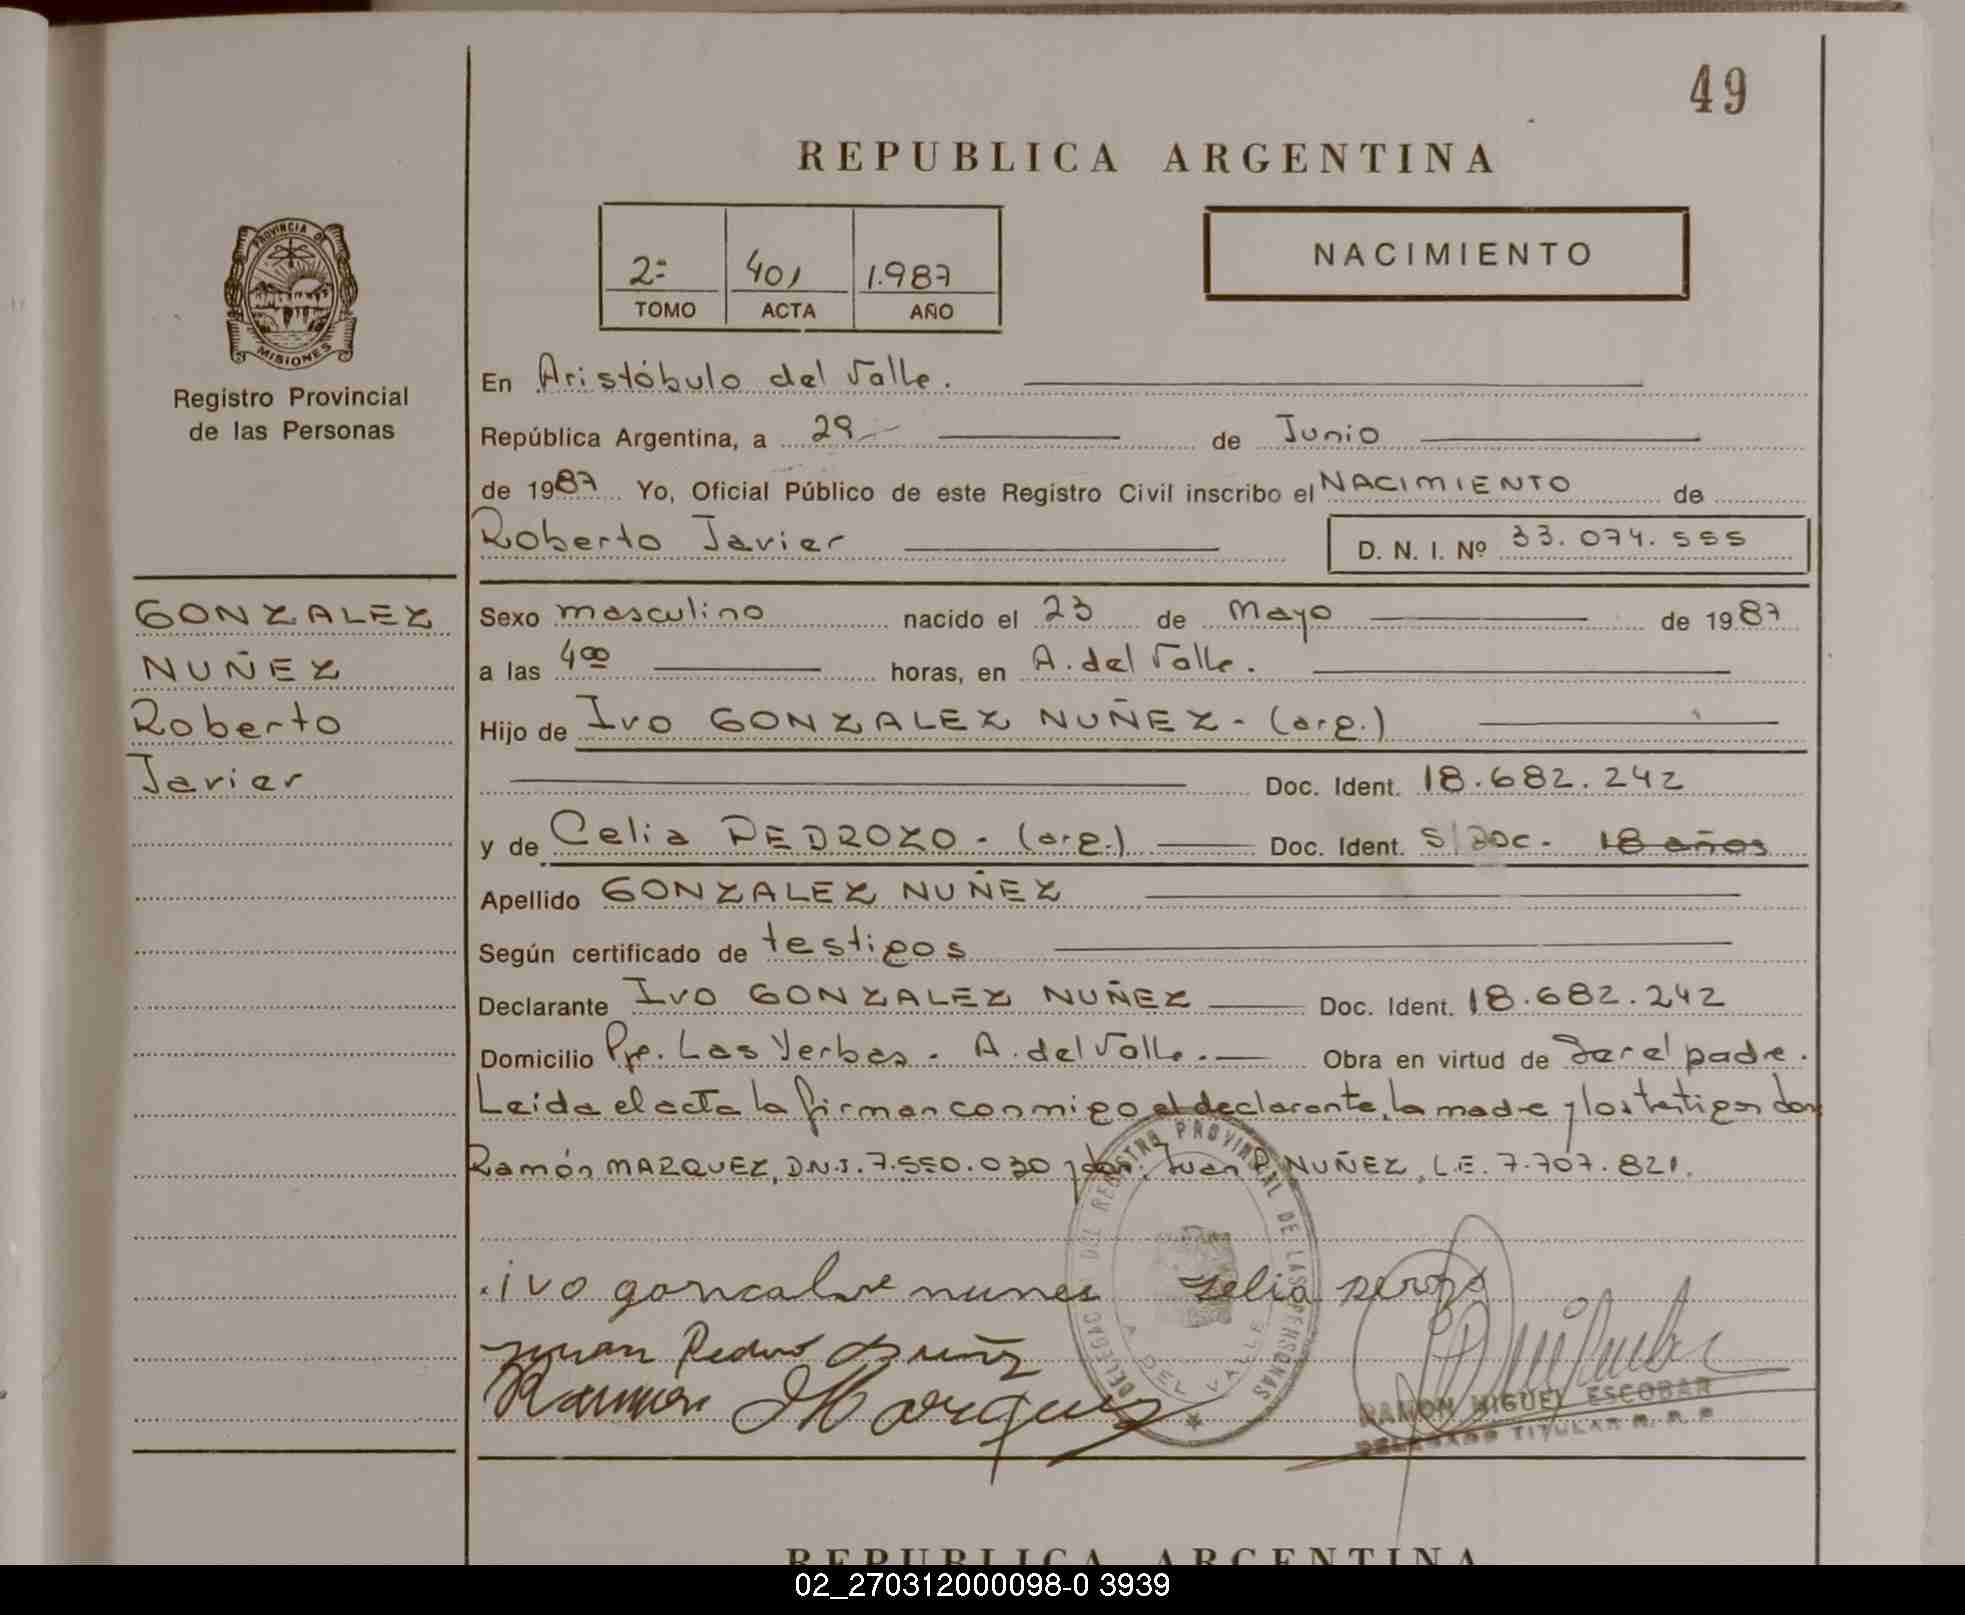 49
REPUBLICA ARGENTINA
2º 401 1.987
TOMO ACTA AÑO
NACIMIENTO
PROVINCIA DE
MISIONES
Registro Provincial
de las Personas
GONZALEZ
NUÑEZ
Roberto
Javier
En Aristóbulo del Valle.
República Argentina, a 29 de Junio
de 1987 Yo, Oficial Público de este Registro Civil inscribo el NACIMIENTO de
Roberto Javier D. N. I. Nº 33.074.555
Sexo masculino nacido el 23 de Mayo de 1987
a las 4⁰⁰ horas, en A. del Valle.
Hijo de Ivo GONZALEZ NUÑEZ - (arg.)
Doc. Ident. 18.682.242
y de Celia PEDROZO - (arg.) Doc. Ident. S/Doc. 18 años
Apellido GONZALEZ NUÑEZ
Según certificado de testigos
Declarante Ivo GONZALEZ NUÑEZ Doc. Ident. 18.682.242
Domicilio Pje. Las Yerbas - A. del Valle. Obra en virtud de Ser el padre.
Leida el acta la firman conmigo el declarante, la madre y los testigos don
Ramón MARQUEZ, D.N.I. 7.550.030 y don: Juan P. NUÑEZ, L.E. 7.707.821.
DELEGAC DEL REGISTRO PROVINCIAL DE LAS PERSONAS
A. DEL VALLE
ivo goncalve nunes selia
Juan Pedro Nuñez
Ramon Marquez
RAMON MIGUEL ESCOBAR
DELEGADO TITULAR R. R. P.
REPUBLICA ARGENTINA
02_270312000098-0 3939